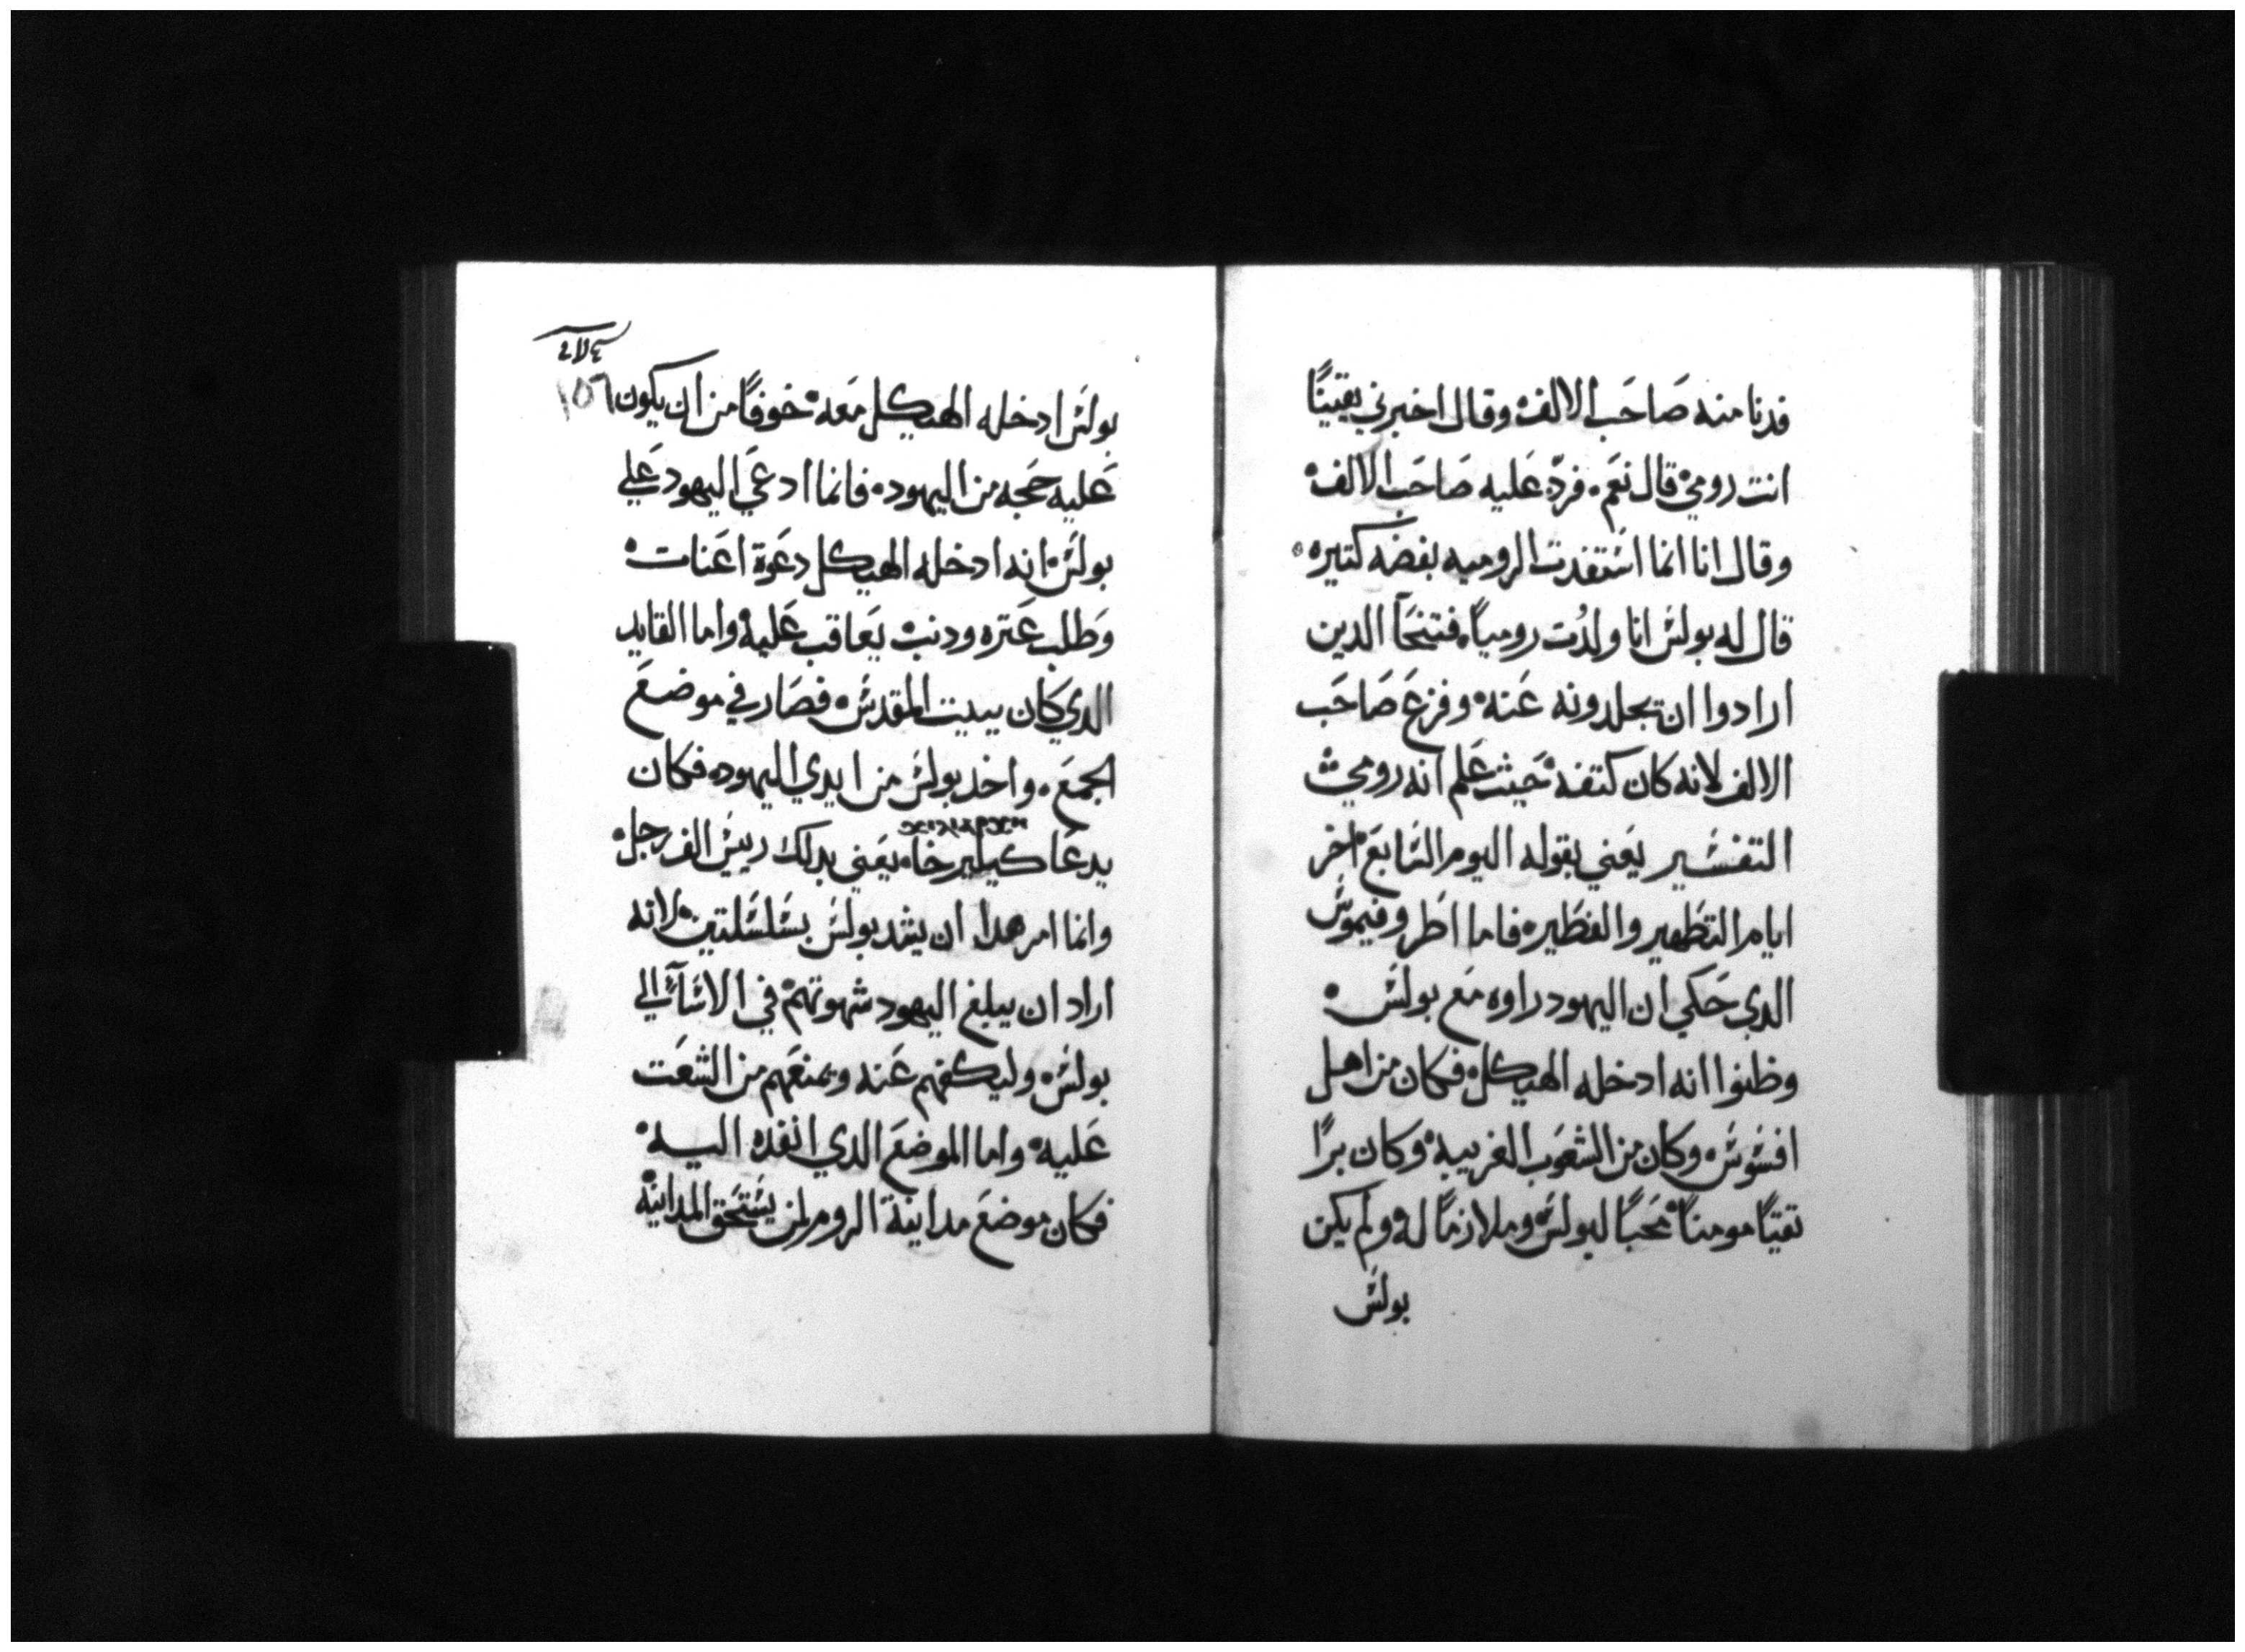 فدنا منه صَاحَب الالف وقال اخبرني يقينًا
انت رومي قال نعَم فردّ عَليه صَاحَب الالف
وقال انا انما اسَتفدت الروميه بفضه كتيره
قال له بولسَ انا ولدُت رومياً فتنحَا الدين
ارادوا ان يجلدونه عَنه وفزعَ صَاحَب
الالف لانه كان كتفه حَيث عَلم انه رومي
التفسَير يعَني بقوله اليوم السَابعَ اخر
ايام التطَهير والفطَير فاما اطَروفيموسَ
الدي حَكي ان اليهود راوه معَ بولسَ
وظنوا انه ادخله الهيكل فكان من اهل
افسَوسَ وكان من الشعَوب الغريبه وكان برًا
تقيًا مومناً محَباً لبولسَ وملازمًا له ولم يكن
بولسَ
١٥٦
بولسَ ادخله الهيكل معَه خوفاً من ان يكون
عَليه حَجه من اليهود فانما ادعَي اليهود عَلي
بولسَ انه ادخله الهيكل دعَوة اعَنات
وَطلب عَتره ودنب يعَاقب عَليه واما القايد
الدي كان ببيت المقدسَ فصَار في موضعَ
الجمعَ واخد بولسَ من ايدي اليهود فكان
يدعَا كيليرخا يعَني بدلك رييسَ الف رجل
وانما امر هدا ان يشد بولسَ بسَلسَلتين لانه
اراد ان يبلغ اليهود شهوتهم في الاسَآة الي
بولسَ وليكفهم عَنه ويمنعَهم من الشعَت
عَليه واما الموضعَ الدي انفده اليه
فكان موضعَ مداينة الروم لمن يسَتحَق المداينة